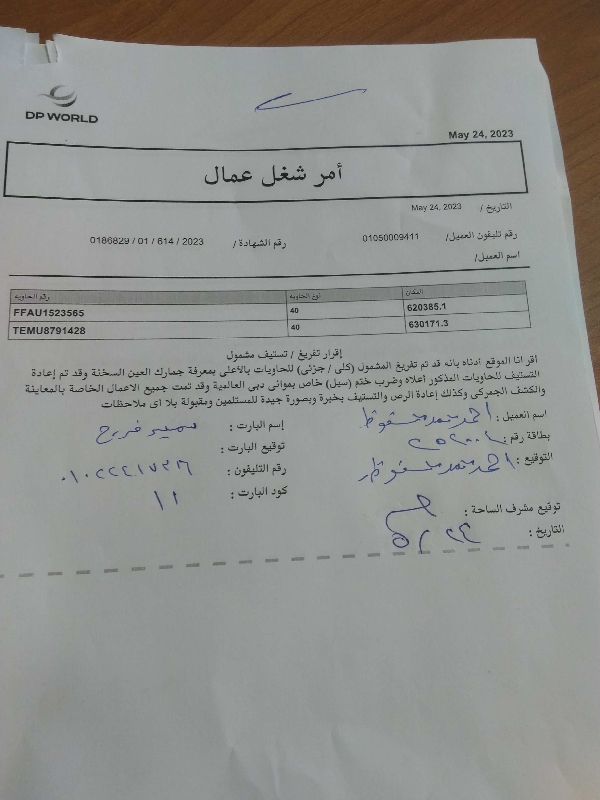 DP WORLD
May 24, 2023
أمر شغل عمال
التاريخ / May 24, 2023
رقم تليفون العميل/ 01050009411 رقم الشهادة/ 0186829 / 01 / 614 / 2023
اسم العميل/
رقم الحاويه نوع الحاويه المكان
FFAU1523565 40 620385.1
TEMU8791428 40 630171.3
إقرار تفريغ / تستيف مشمول
أقر انا الموقع أدناه بانه قد تم تفريغ المشمول (كلى / جزئى) للحاويات بالاعلى بمعرفة جمارك العين السخنة وقد تم إعادة
التستيف للحاويات المذكور أعلاه وضرب ختم (سيل) خاص بموانى دبى العالمية وقد تمت جميع الاعمال الخاصة بالمعاينة
والكشف الجمركى وكذلك إعادة الرص والتستيف بخبرة وبصورة جيدة للمستلمين ومقبولة بلا اى ملاحظات
اسم العميل : احمد محمد محفوظ إسم البارت : سمير فرج
بطاقة رقم : توقيع البارت :
التوقيع : احمد محمد محفوظ رقم التليفون : ٠١٠٢٢٢١٧٣٢٦
كود البارت : ١١
توقيع مشرف الساحة :
التاريخ : ٢٤ / ٥